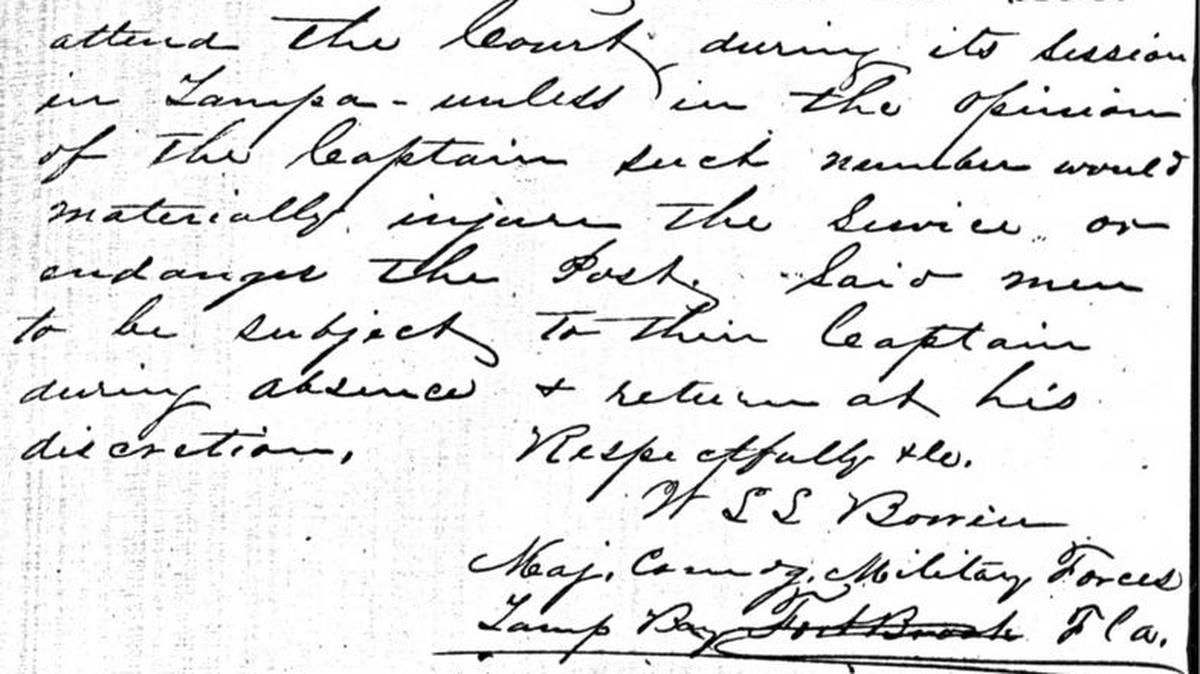 attend the Court, during its session
in Tampa - unless in the opinion
of the Captain such number would
materially injure the Service or
endanger the Post. Said men
to be subject to their Captain
during absence & return at his
discretion.
Respectfully &c.
W L L Bowen
Maj. Comdg. Military Forces
Tamp Bay Fort Brook Fla.